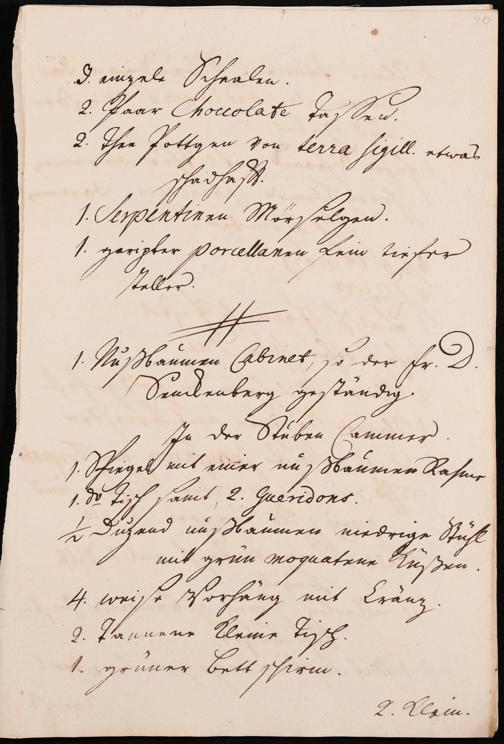 20
3. einzele Schaalen.
2. Paar Choccolate Tassen.
2. Thee Pottgen von terra sigill. etwas
schadhafft.
1. Serpentinen Mörselgen.
1. geripter porcellanen fein tiefer
Teller.
1. Nußbaumen Cabinet, so der Hr. D.
Senckenberg geständig.
In der Stuben Cammer.
1. Spiegel mit einer nußbaumen Rahme
1. do Tisch samt 2. Gueridons.
1/2 Duzend nußbaumen niedrige Stühl
mit grün moquatene Küßen.
4. weise Vorhäng mit Kränz.
2. Tannene kleine Tisch.
1. grüner Bettschirm.
2. Klein.